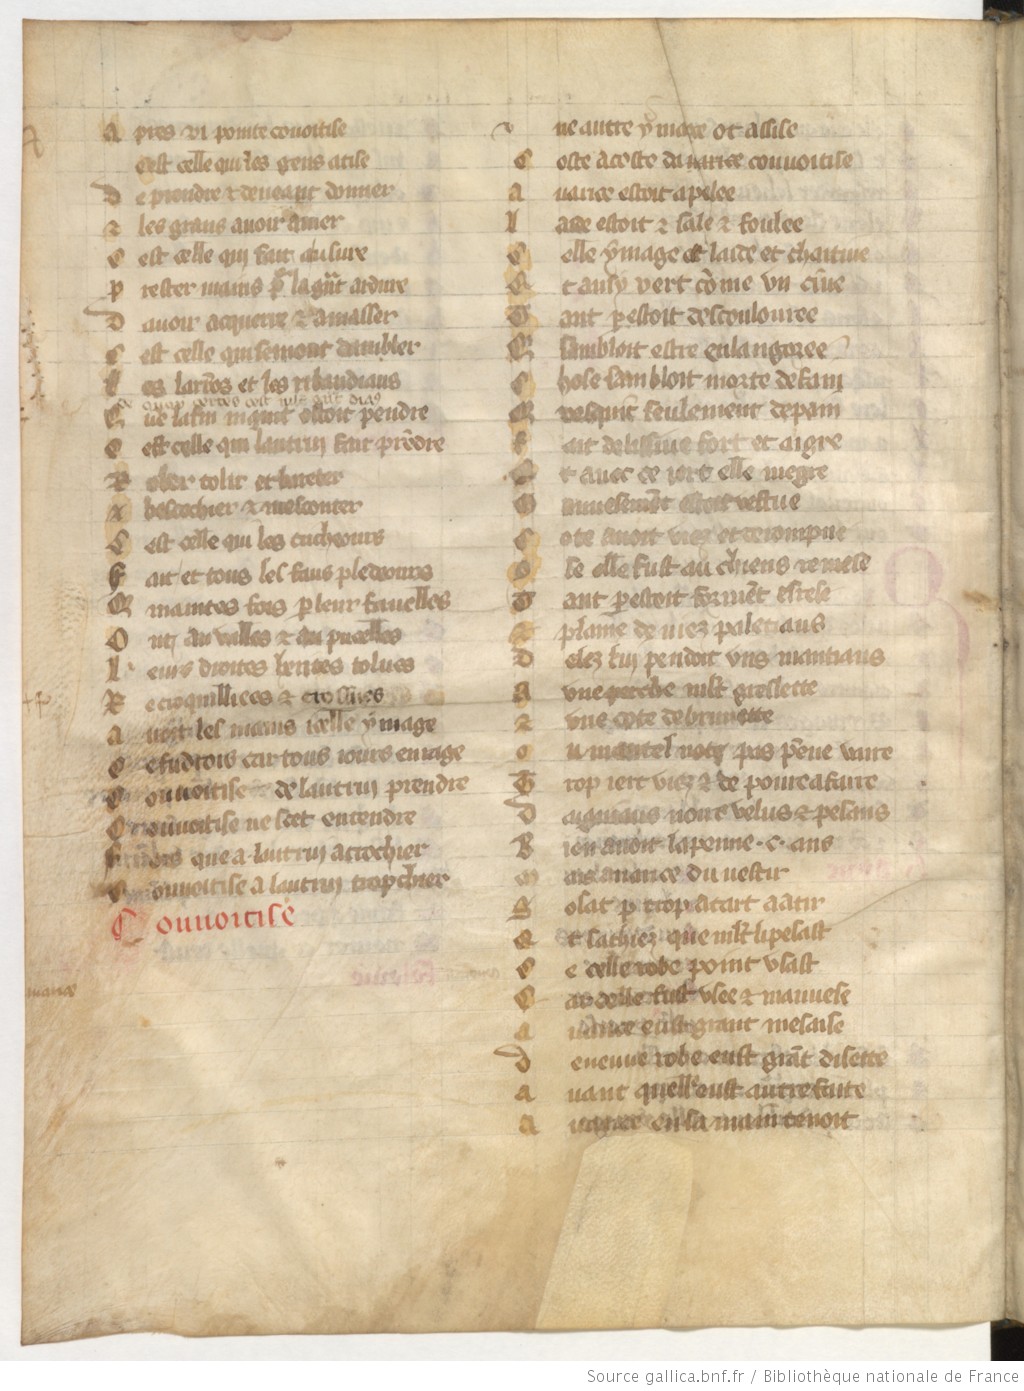 A pres vi pointe covoitise
C est celle qui les gens atise
D e prendre et de neant donner
Et les grans avoir amer
C est celle qui fait a usure
P rester mains pᵉ la gͣnt ardure
D avoir acquerre et amasser
C est celle qui semont dambler
L es larrons et les ribaudiaus
Q ue la fin mquit estoit pendre
C est celle qui lautruy fait prēdre
R ober tolir et bareter
E t bescochier et mesconter
C est celle qui les tricheours
F ait et tous les faus pledeours
Q maintes fois pͬ leur favelles
O nt au valles et au pucelles
L eurs droites herites tolues
R ecroquilliees et crossues
A voit les mains icelle ymage
C e fu drois car tous iours enrage
C ouvoitise de lautruy prendre
C ouvoitise ne scet entendre
F ors que a lautruy acrochier
C ouvoitise a lautruy trop chier
Couvoitise
V ne autre ymage ot assise
C oste a coste da varice couvoitise
A varice estoit apelee
L aide estoit et sale et foulee
C elle ymage et laide et chaitive
E t aussy vert cōme un cive
T ant pestoit descoulouree
Q sambloit estre enlangoree
C hose sambloit morte de fain
Q vesquit seulement de pain
F ait de lissive fort et aigre
E t avec ce iert elle megre
P ovrement estoit vestue
C ote avoit viez et derompue
C ōe elle fust au chiens remese
T ant pestoit formēt esrese
E t plaine de viez paletiaus
D elez luy pendoit uns mantiaus
A une perche mlt greslette
Et une cote de brunette
O u mantel not pas pēne vaire
T rop iert viez et de povre afaire
D aigniaus noirs velus et pesans
B ien avoit la penne .c. ans
M ais avarice du vestir
S e last p trop atart aatir
E t sachiez que mlt li pesast
S e celle robe point usast
C ar celle fust usee et mauvese
A varice eust grant mesaise
D e neuve robe eust grāt disette
A vant quelle eust autre faite
A varice en sa main tenoit
Source gallica.bnf.fr / Bibliothèque nationale de France